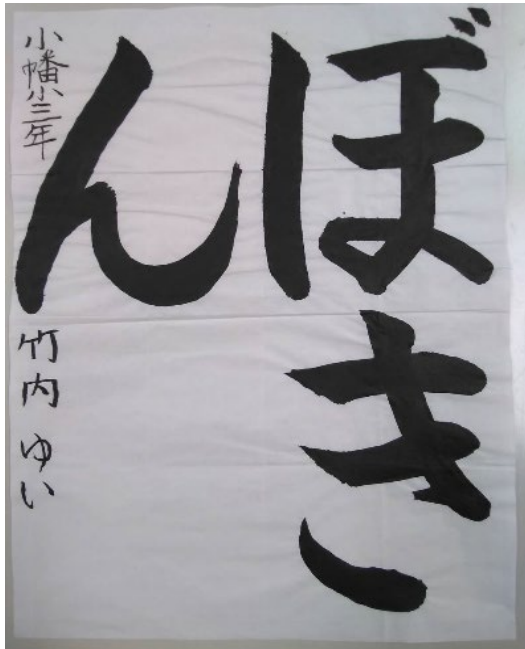 ぼき
ん
小幡小三年
竹内ゆい